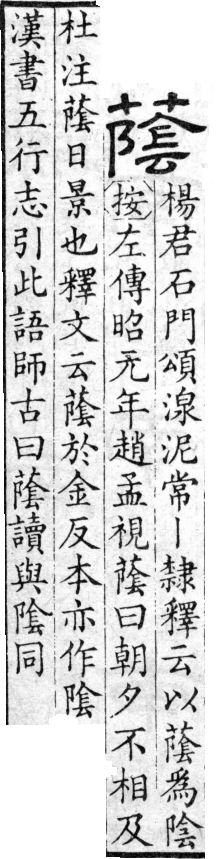 蔭
楊君石門頌湶泥常丨隸釋云以蔭爲陰
按左傳昭元年趙孟視蔭曰朝夕不相及
杜注蔭日景也釋文云蔭於金反本亦作陰
漢書五行志引此語師古曰蔭讀與陰同